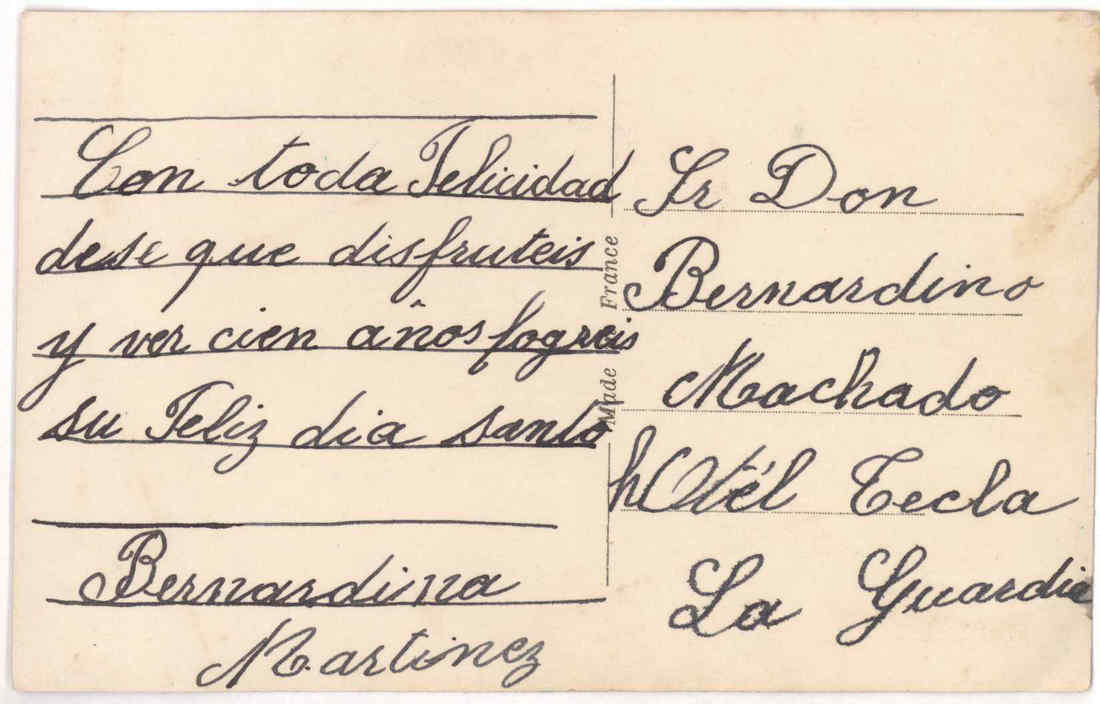 Con toda Felicidad
dese que disfruteis
y ver cien años fogreis
su Feliz dia santo
Bernardina
Martinez
Made France
Sr Don
Bernardino
Machado
hOtél Tecla
La Guardia